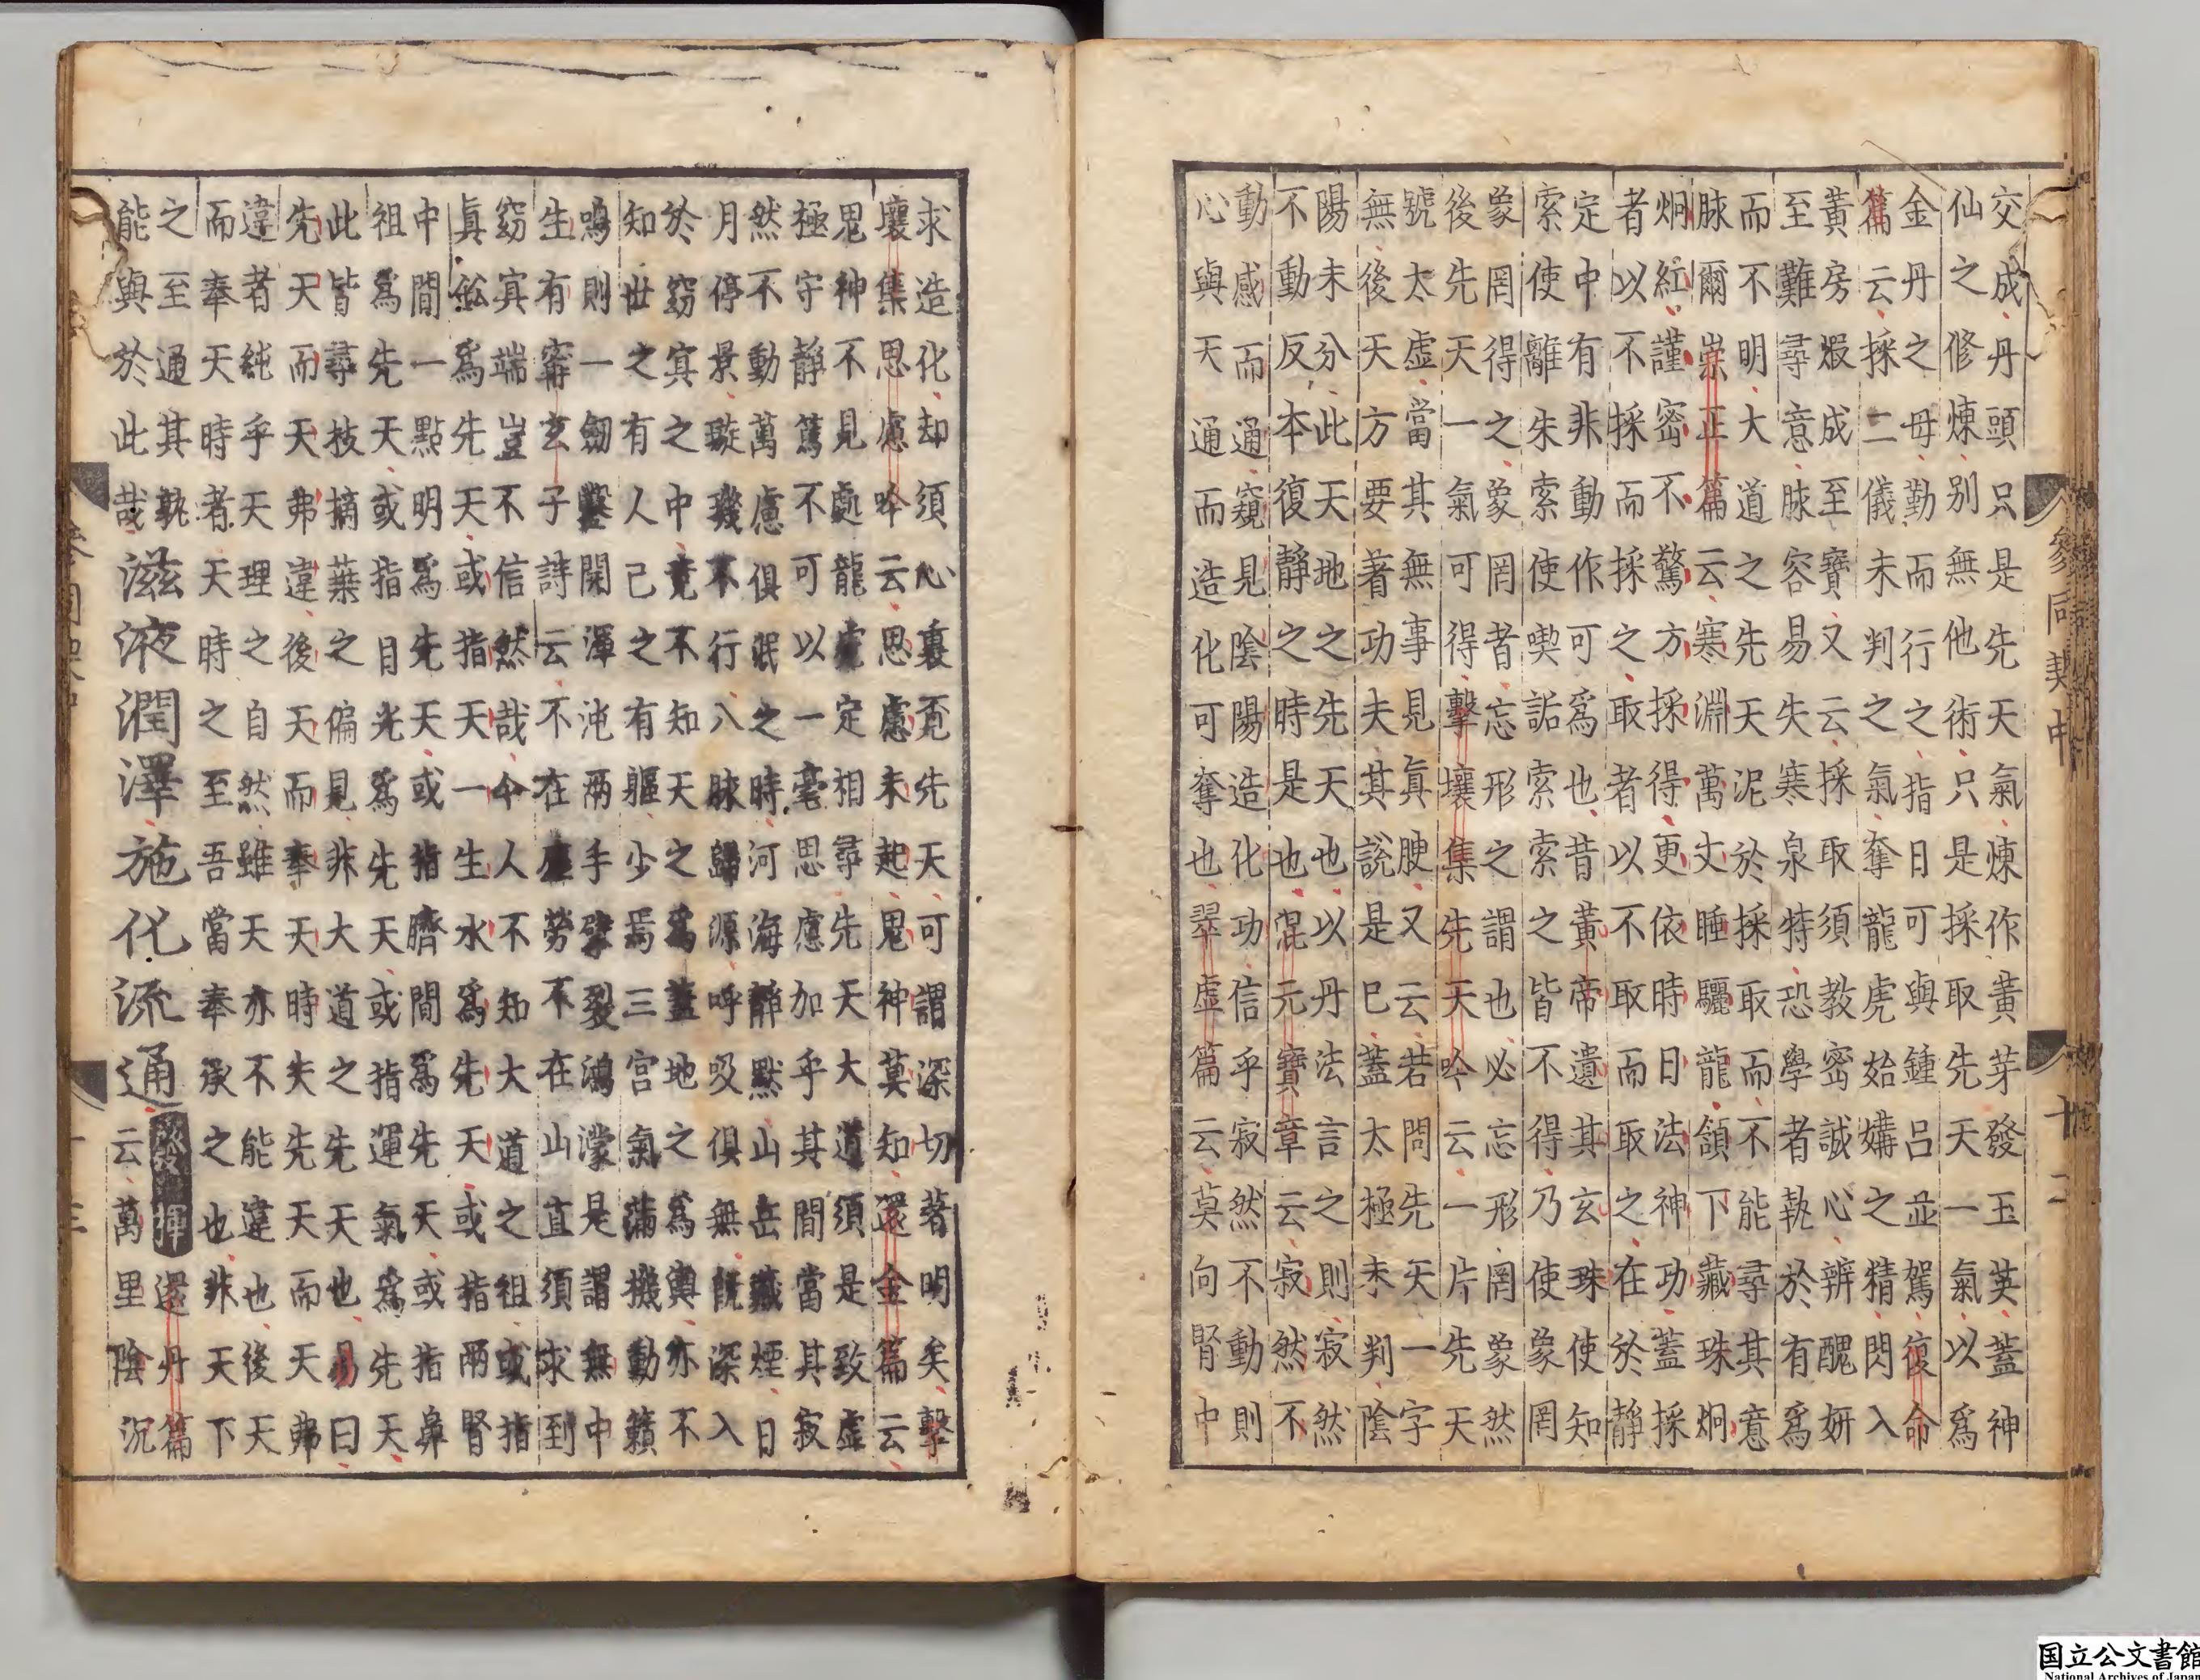 交成丹頭只是先天氣煉作黃芽發玉英蓋神
仙之修煉別無他術只是採取先天一氣以爲
金丹之母勤而行之指日可與鍾呂並駕復命
篇云採二儀未判之氣奪龍虎始媾之精閃入
黃房煅成至寶又云採取須教密誠心辨醜妍
至難尋意脉容易失寒泉特恐學者執於有爲
而不明大道之先天泥於採取而不能尋其意
脉爾崇正篇云寒淵萬丈睡驪龍頷下藏珠炯
炯紅謹密不驚方採得更依時日法神功蓋採
者以不採而採之取者以不取而取之在於靜
定中有非動作可爲也昔黃帝遺其玄珠使知
索使離朱索使喫詬索索之皆不得乃使象罔
象罔得之象罔者忘形之謂也必忘形罔象然
後先天一氣可得擊壤集先天吟云一片先天
號太虛當其無事見眞腴又云若問先天一字
無後天方要著功夫其說是已蓋太極未判陰
陽未分此天地之先天也以丹法言之則寂然
不動反本復靜之時是也混元寶章云寂然不
動感而通通窺見陰陽造化功信乎寂然不動則
心與天通而造化可奪也翠虛篇云莫向腎中
參同契中
十二
求造化却須心裏覓先天可謂深切著明矣擊
壤集思慮吟云思慮未起鬼神莫知還金篇云
鬼神不見處龍虎定相尋先天大道須是致虛
極守靜篤不可以一毫思慮加乎其間當其寂
然不動萬慮俱泯之時河海靜默山岳藏煙日
月停景璇璣不行八脉歸源呼吸俱無旣深入
於窈冥之中竟不知天之爲蓋地之爲輿亦不
知世之有人己之有軀少焉三宮氣滿機動籟
鳴則一劒鑿開渾沌兩手擘裂鴻濛是謂無中
生有甯玄子詩云不在塵勞不在山直須求到
窈冥端豈不信然哉今人不知大道之祖或指
眞鈆爲先天或指天一生水爲先天或指兩腎
中間一點明爲先天或指臍間爲先天或指鼻
祖爲先天或指目光爲先天或指運氣爲先天
此皆尋枝摘葉之偏見非大道之先天也易曰
先天而天弗違後天而奉天時夫先天而天弗
違者純乎天理之自然雖天亦不能違也後天
而奉天時者天時之至吾當奉承之也非天下
之至通其孰
能與於此哉滋液潤澤施化流通發揮還丹篇
云萬里陰沉